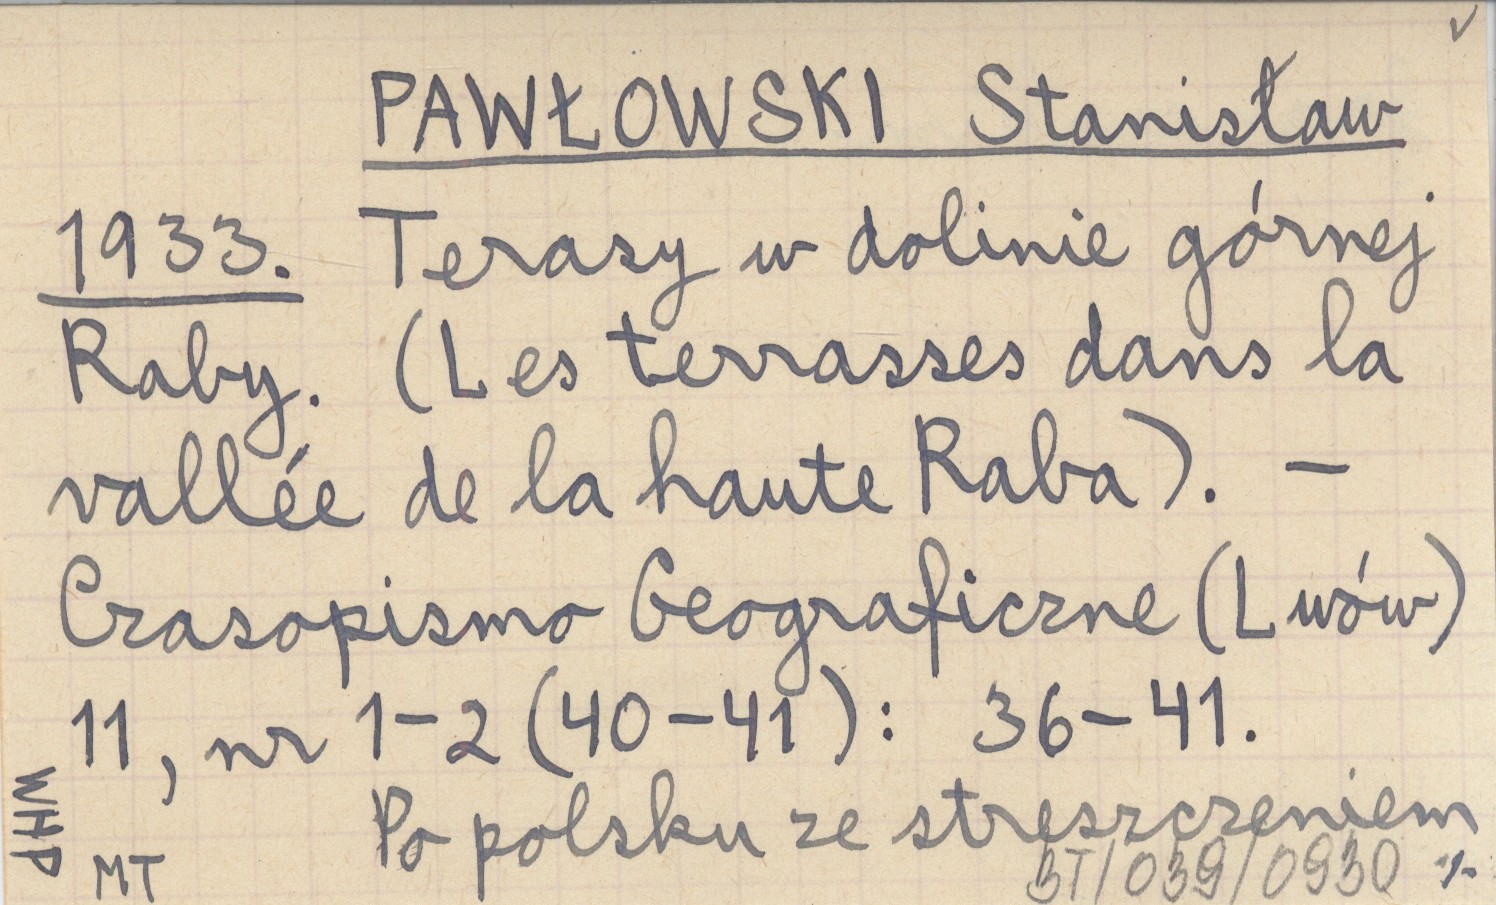 ✓
PAWŁOWSKI Stanisław
1933. Terasy w dolinie górnej
Raby. (Les terrasses dans la
vallée de la haute Raba). —
Czasopismo Geograficzne (Lwów)
11, nr 1-2 (40-41): 36-41.
Po polsku ze streszczeniem
WHP
MT
3T/039/0930 ·/·